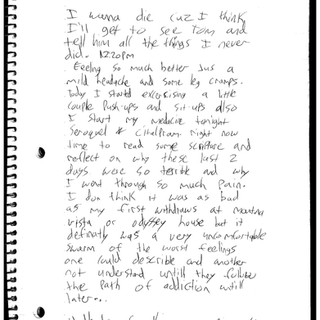 I wanna die cuz I think
I'll get to see Tom and
tell him all the things I never
did. 12:20pm
Feeling so much better Just a
mild headache and some leg cramps.
Today I started exercising a little
couple Push-ups and sit-ups also
I start my medicine tonight
Seroquel & Citalopram right now
time to read some scripture and
reflect on why these last 2
days were so terrible and why
I went through so much Pain.
I don think it was as bad
as my first withdraws at mountain
vista or odyssey house but it
definatly was a very uncomfortable
swarm of the worst feelings
one could describe and another
not understand untill they follow
the Path of addiction untill
later...